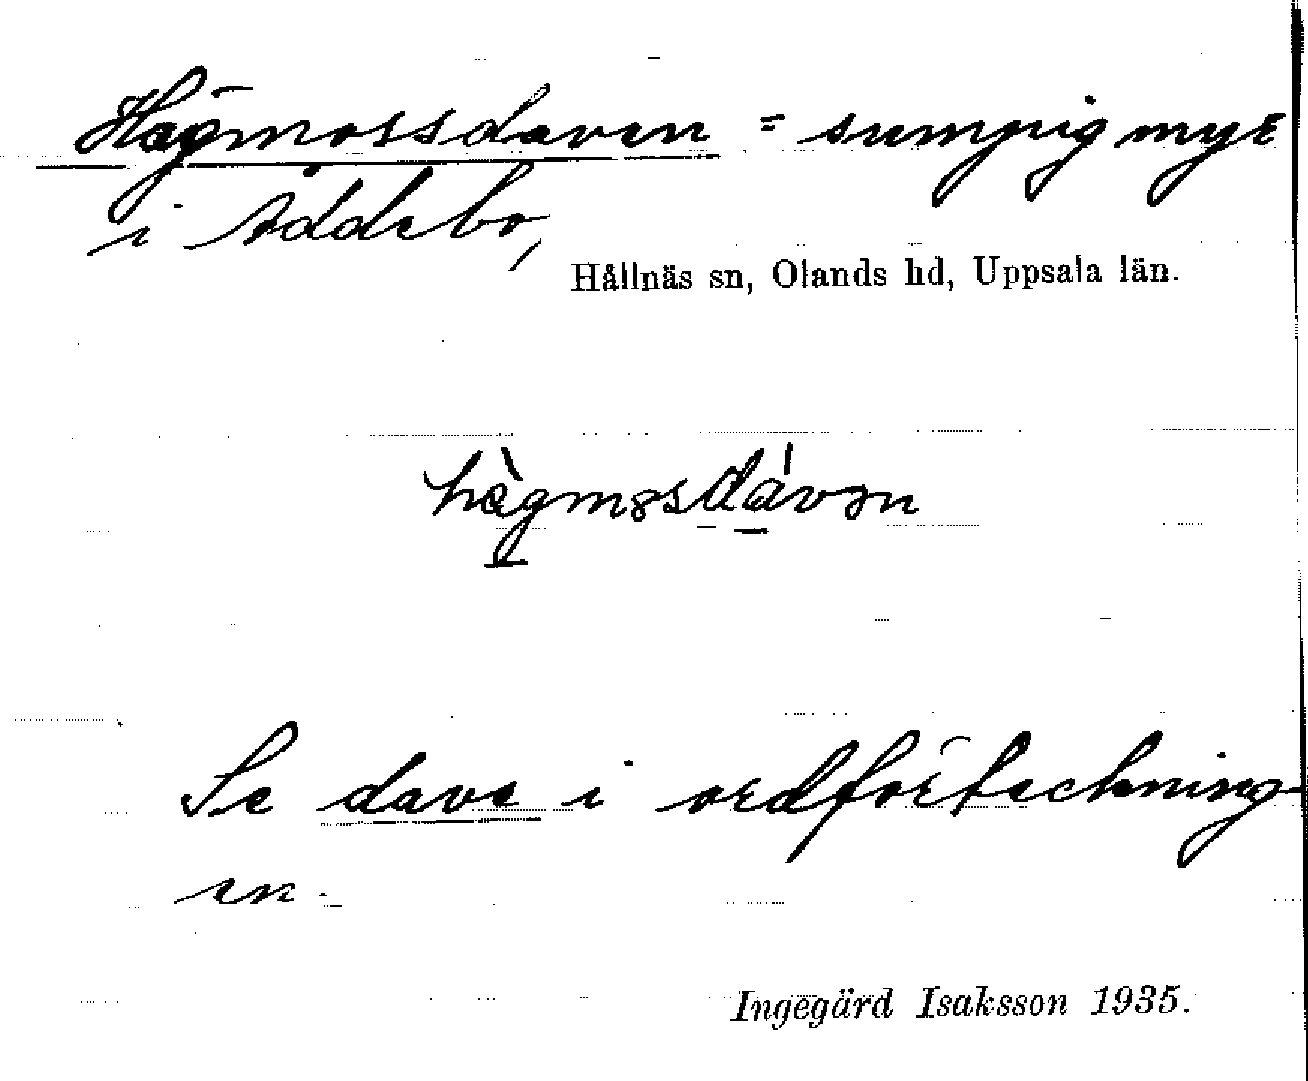 Högmossdaven = sumpig myr
i Åddebo,
Hållnäs sn, Olands hd, Uppsala län.
Se dave i ordförteckning-
en.
Ingegärd Isaksson 1935.